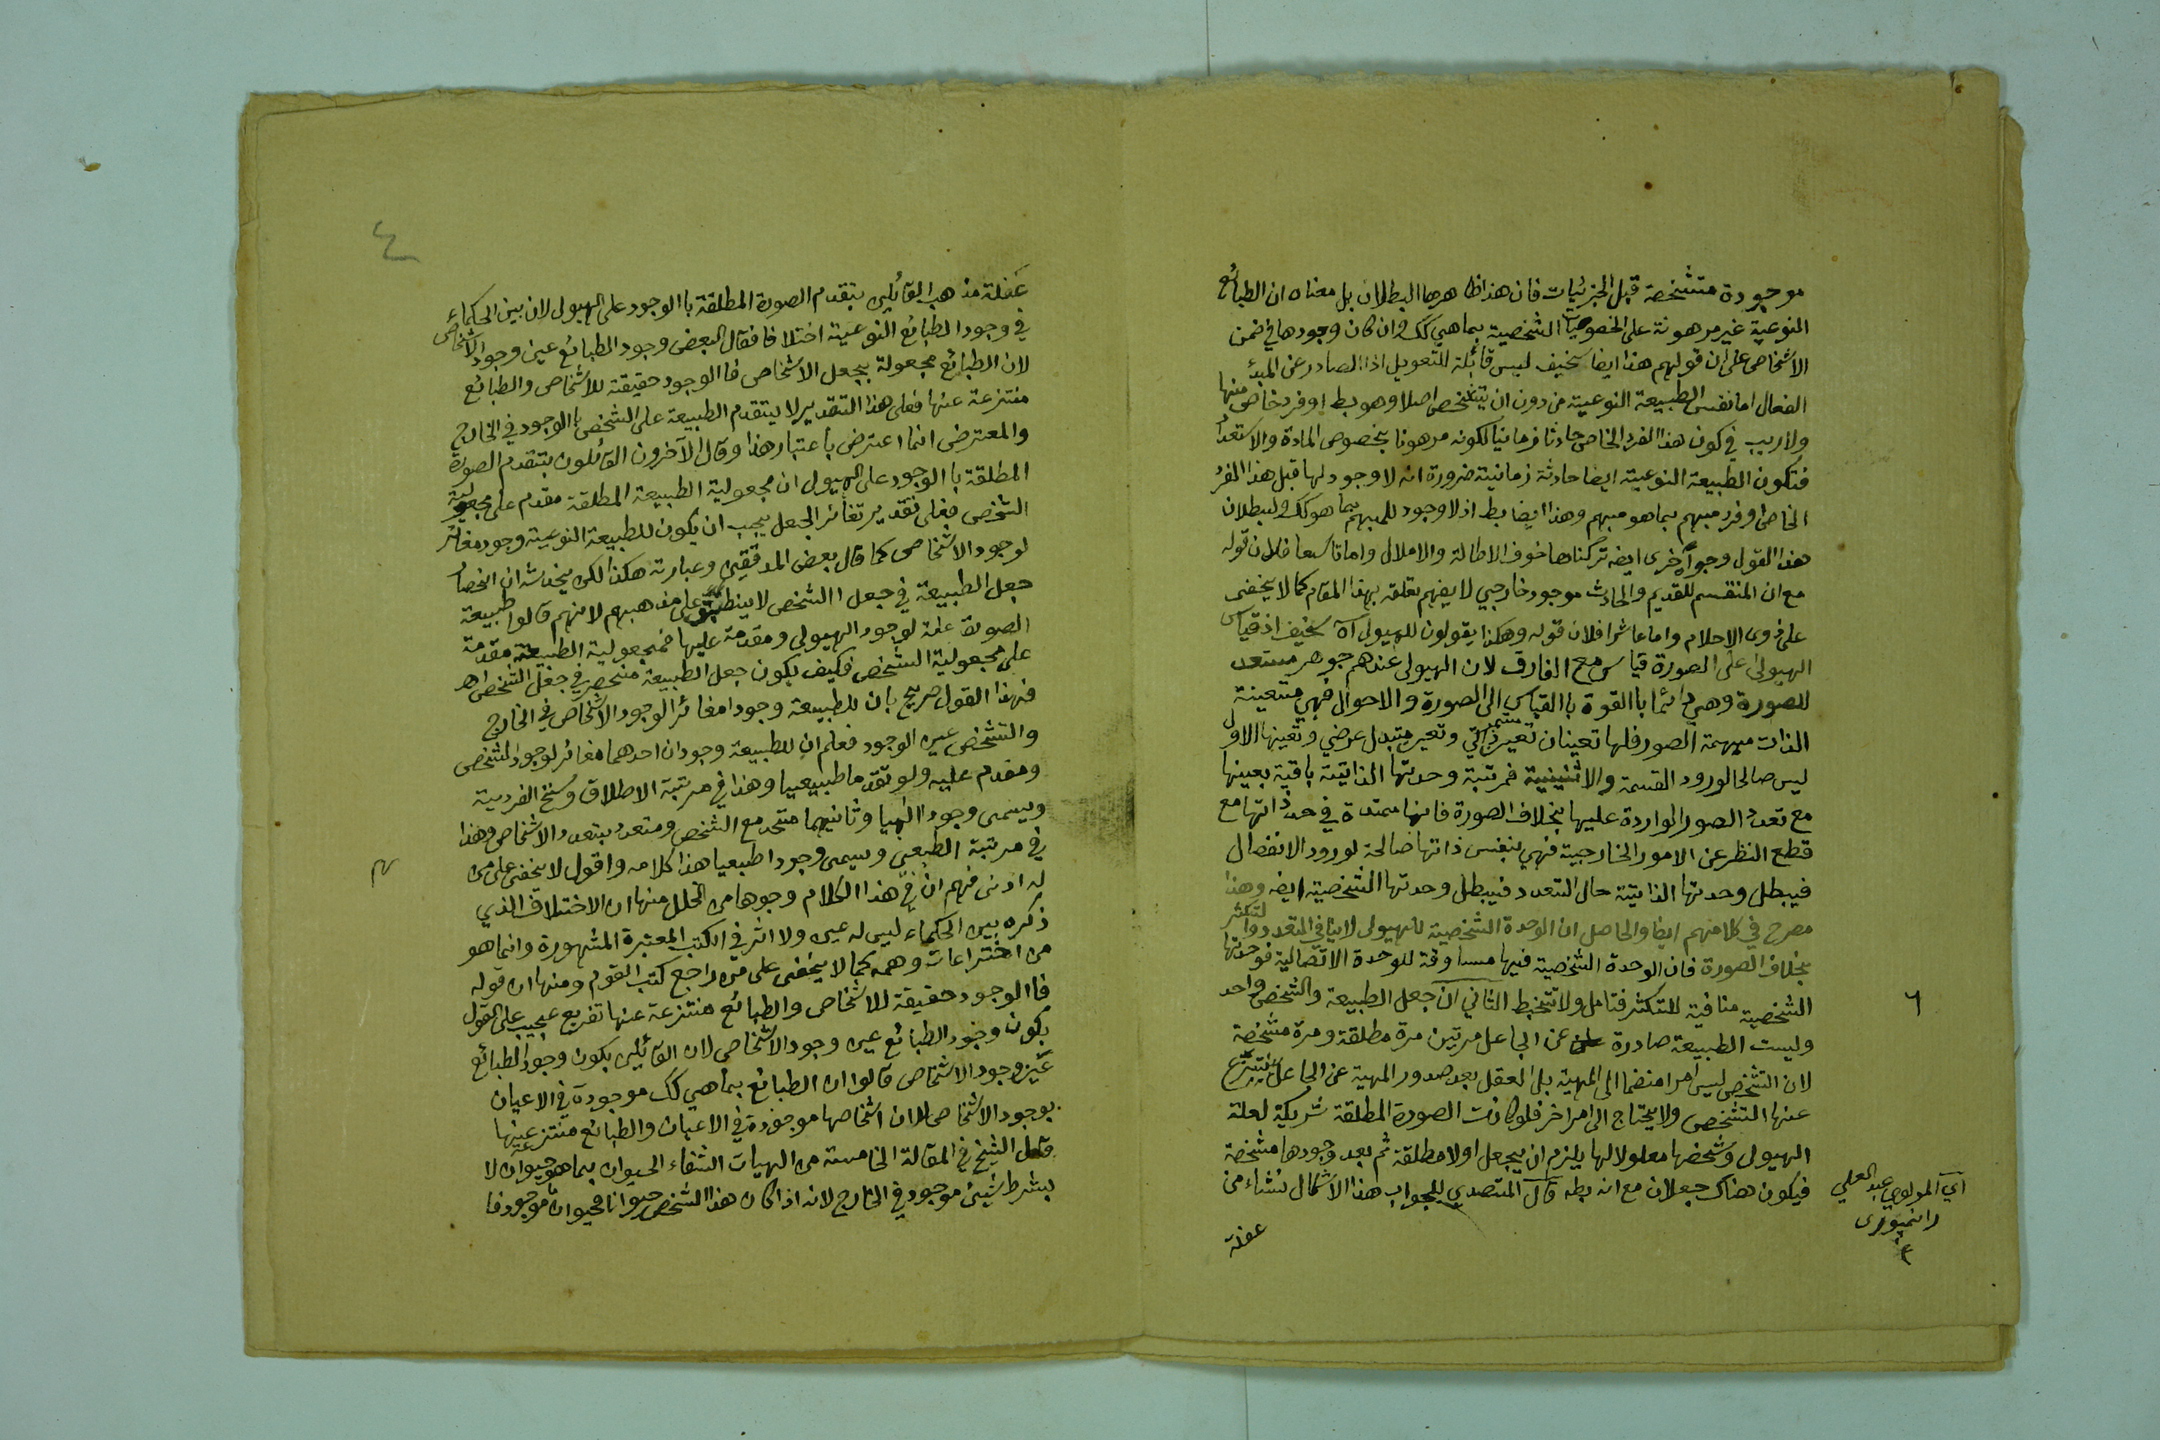 موجودة متشخصة قبل الجزئيات فان هذا ظاهرها البطلان بل معناه ان الطبائع
النوعية غير مرهونة على الخصوصيات الشخصية بما هي كك وان كان وجودها في ضمن
الاشخاص على ان قولهم هذا ايضا سخيف ليس قائلة للتعويل اذ الصادر عن المبدء
الفعال اما نفس الطبيعة النوعية من دون ان يتشخص اصلا وهو بط او فرد خاص منها
ولا ريب في كون هذا الفرد الخاص حادثا زمانيا لكونه مرهونا بخصوص المادة والاستعداد
فتكون الطبيعة النوعية ايضا حادثة زمانية ضرورة انه لا وجود لها قبل هذا الفرد
الخاص او فرد مبهم بما هو مبهم وهذا ايضا بط اذ لا وجود للمبهم بما هو كك ولبطلان
هذا القول وجوه اخرى ايضه تركناها خوف الاطالة والاملال واما تاسعا فلان قوله
مع ان المنقسم للقديم والحادث موجود خارجي لا يفهم تعلقه بهذا المقام كما لا يخفى
على ذوى الاحلام واما عاشرا فلان قوله وهكذا يقولون للهيولى آه سخيف اذ قياس
الهيولى على الصورة قياس مع الفارق لان الهيولى عندهم جوهر مستعد
للصورة وهي دائما باالقوة باالقياس الى الصورة والاحوال فهي متعينة
الذات مبهمة الصور فلها تعينان تعين ذاتي مستمر وتعين متبدل عرضي وتعينها الاول
ليس صالحا لورود القسمة والاثنينية فمرتبة وحدتها الذاتية باقية بعينها
مع تعدد الصور الواردة عليها بخلاف الصورة فانها ممتدة في حد ذاتها مع
قطع النظر عن الامور الخارجية فهي بنفس ذاتها صالحة لورود الانفصال
فيبطل وحدتها الذاتية حال التعدد فيبطل وحدتها الشخصية ايضه وهذا
مصرح في كلامهم ايضا والحاصل ان الوحدة الشخصية للهيولى لا ينافي التعدد والتكثر
بخلاف الصورة فان الوحدة الشخصية فيها مساوقة للوحدة الاتصالية فوحدتها
الشخصية منافية للتكثر فتامل ولا تتخبط الثاني ان جعل الطبيعة والشخص واحد
وليست الطبيعة صادرة عن الجاعل مرتين مرة مطلقة ومرة مشخصة
لان التشخص ليس امرا منضما الى المهية بل العقل بعد صدور المهية عن الجاعل ينتزع
عنها التشخص ولا يحتاج الى امر اخر فلو كانت الصورة المطلقة شريكة لعلة
الهيولى وشخصها معلولا لها يلزم ان يجعل اولا مطلقة ثم بعد وجودها مشخصة
فيكون هناك جعلان مع انه بطه قال المتصدي للجواب هذا الاشكال نشاء من
غفلة
اي المولوي عبد العلي
رامپوری
٦
٤
غفلة مذهب القائلين بتقدم الصورة المطلقة باالوجود على الهيولى لان بين الحكماء
في وجود الطبائع النوعية اختلافا فقال البعض وجود الطبائع عين وجود الاشخاص
لان الطبائع مجعولة بجعل الاشخاص فاالوجود حقيقة للاشخاص والطبائع
منتزعة عنها فعلى هذا التقدير لا يتقدم الطبيعة على الشخص باالوجود في الخارج
والمعترض انما اعترض باعتبار هذا وقال الآخرون القائلون بتقدم الصورة
المطلقة باالوجود على الهيولى ان مجعولية الطبيعة المطلقة مقدم على مجعولية
الشخص فعلى تقدير تغائر الجعل يجب ان يكون للطبيعة النوعية وجود مغائر
لوجود الاشخاص كما قال بعض المدققين وعبارته هكذا لكن يخدشه ان انحصار
جعل الطبيعة في جعل الشخص لا ينطبق على مذهبهم لانهم قالوا طبيعة
الصورة علة لوجود الهيولى ومقدمة عليها فمجعولية الطبيعة مقدمة
على مجعولية الشخص فكيف يكون جعل الطبيعة منحصر في جعل الشخص اهـ
فهذا القول صريح بان للطبيعة وجودا مغائر الوجود الاشخاص في الخارج
والتشخص عين الوجود فعلم ان للطبيعة وجودان احدهما مغائر لوجود الشخص
ومقدم عليه ولو تقدما طبيعيا وهذا في مرتبة الاطلاق وسنخ الفردية
ويسمى وجودا الهيا وثانيهما متحد مع الشخص ومتعدد بتعدد الاشخاص وهذا
في مرتبة الطبعي ويسمى وجودا طبعيا هذا كلامه واقول لا يخفى على من
له ادنى فهم ان في هذا الكلام وجوها من الخلل منها ان الاختلاف الذي
ذكره بين الحكماء ليس له عين ولا اثر في الكتب المعتبرة المشهورة وانما هو
من اختراعات وهمه كما لا يخفى على من راجع كتب القوم ومنها ان قوله
فاالوجود حقيقة للاشخاص والطبائع منتزعة عنها تفريع عجيب على القول
بكون وجود الطبائع عين وجود الاشخاص لان القائلين بكون وجود الطبائع
عين وجود الاشخاص قالوا ان الطبائع بما هي كك موجودة في الاعيان
بوجود الاشخاص لا ان اشخاصها موجودة في الاعيان والطبائع منتزعة عنها
قال الشيخ في المقالة الخامسة من الهيات الشفاء الحيوان بما هو حيوان لا
بشرط شيئ موجود في الخارج لانه اذا كان هذا الشخص حيوانا فحيوان ما موجود فا